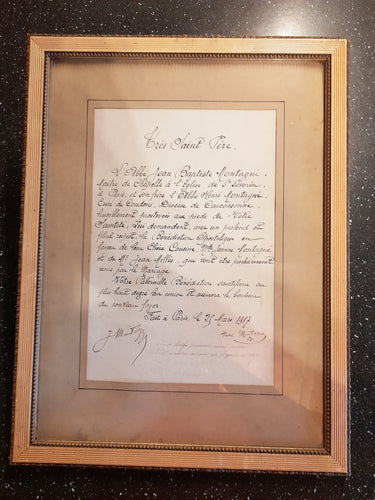 Très Saint Père.
L'Abbé Jean Baptiste Montagné,
Maître de Chapelle à l'Eglise de St Séverin,
à Paris, et son frère l'Abbé Henri Montagné,
Curé de Diocèse de Carcassonne,
humblement prosternés aux pieds de Votre
Sainteté, Lui demandent, avec un profond et
filial respect, la Bénédiction Apostolique en
faveur de leur Chère Cousine, Mlle Jeanne Montagné
et de Mr Jean qui vont être prochainement
unis par le Mariage.
Votre Paternelle Bénédiction sanctifiera au
plus haut degré leur union et assurera le bonheur
du nouveau foyer.
Fait à Paris, le 25 Mars 1917